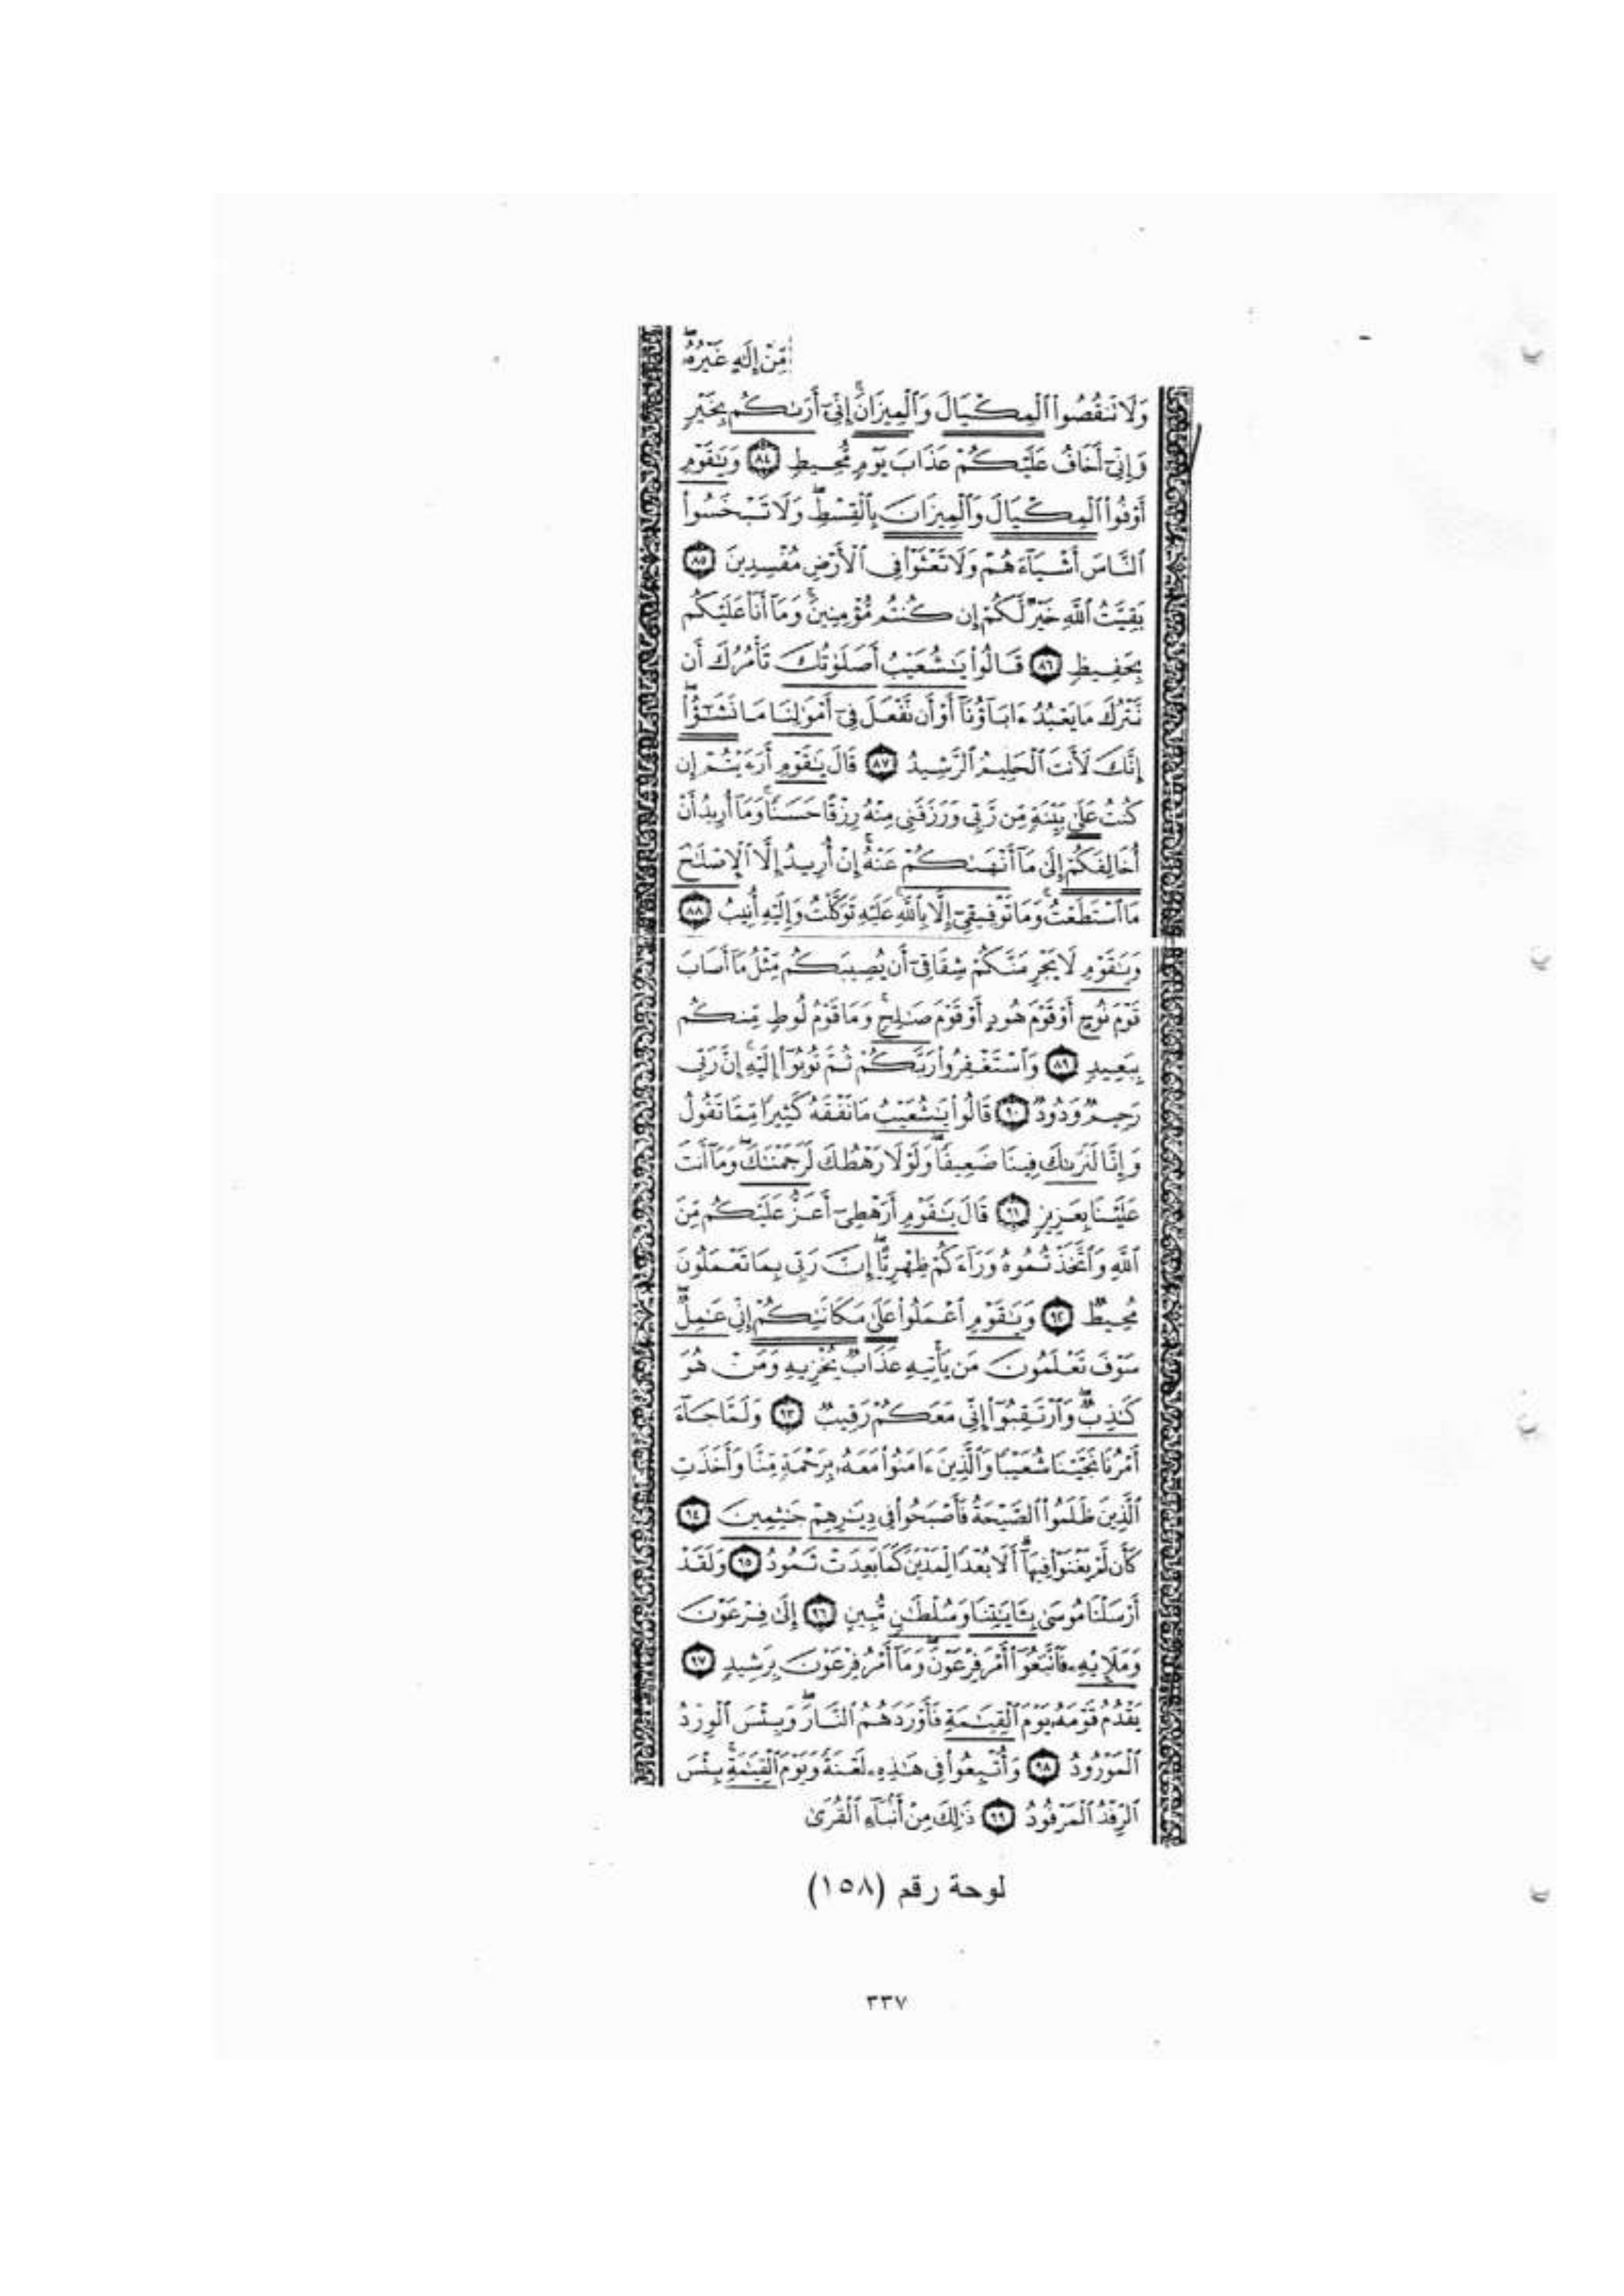 مِّنْ إِلَٰهٍ غَيْرُهُۥۖ
وَلَا تَنقُصُوا۟ ٱلْمِكْيَالَ وَٱلْمِيزَانَۚ إِنِّىٓ أَرَىٰكُم بِخَيْرٍ
وَإِنِّىٓ أَخَافُ عَلَيْكُمْ عَذَابَ يَوْمٍ مُّحِيطٍ ٨٤ وَيَٰقَوْمِ
أَوْفُوا۟ ٱلْمِكْيَالَ وَٱلْمِيزَانَ بِٱلْقِسْطِۖ وَلَا تَبْخَسُوا۟
ٱلنَّاسَ أَشْيَآءَهُمْ وَلَا تَعْثَوْا۟ فِى ٱلْأَرْضِ مُفْسِدِينَ ٨٥
بَقِيَّتُ ٱللَّهِ خَيْرٌ لَّكُمْ إِن كُنتُم مُّؤْمِنِينَۚ وَمَآ أَنَا۠ عَلَيْكُم
بِحَفِيظٍ ٨٦ قَالُوا۟ يَٰشُعَيْبُ أَصَلَوٰتُكَ تَأْمُرُكَ أَن
نَّتْرُكَ مَا يَعْبُدُ ءَابَآؤُنَآ أَوْ أَن نَّفْعَلَ فِىٓ أَمْوَٰلِنَا مَا نَشَٰٓؤُا۟ۖ
إِنَّكَ لَأَنتَ ٱلْحَلِيمُ ٱلرَّشِيدُ ٨٧ قَالَ يَٰقَوْمِ أَرَءَيْتُمْ إِن
كُنتُ عَلَىٰ بَيِّنَةٍ مِّن رَّبِّى وَرَزَقَنِى مِنْهُ رِزْقًا حَسَنًاۚ وَمَآ أُرِيدُ أَنْ
أُخَالِفَكُمْ إِلَىٰ مَآ أَنْهَىٰكُمْ عَنْهُۚ إِنْ أُرِيدُ إِلَّا ٱلْإِصْلَٰحَ
مَا ٱسْتَطَعْتُۚ وَمَا تَوْفِيقِىٓ إِلَّا بِٱللَّهِۚ عَلَيْهِ تَوَكَّلْتُ وَإِلَيْهِ أُنِيبُ ٨٨
وَيَٰقَوْمِ لَا يَجْرِمَنَّكُمْ شِقَاقِىٓ أَن يُصِيبَكُم مِّثْلُ مَآ أَصَابَ
قَوْمَ نُوحٍ أَوْ قَوْمَ هُودٍ أَوْ قَوْمَ صَٰلِحٍۚ وَمَا قَوْمُ لُوطٍ مِّنكُم
بِبَعِيدٍ ٨٩ وَٱسْتَغْفِرُوا۟ رَبَّكُمْ ثُمَّ تُوبُوٓا۟ إِلَيْهِۚ إِنَّ رَبِّى
رَحِيمٌ وَدُودٌ ٩٠ قَالُوا۟ يَٰشُعَيْبُ مَا نَفْقَهُ كَثِيرًا مِّمَّا تَقُولُ
وَإِنَّا لَنَرَىٰكَ فِينَا ضَعِيفًاۖ وَلَوْلَا رَهْطُكَ لَرَجَمْنَٰكَۖ وَمَآ أَنتَ
عَلَيْنَا بِعَزِيزٍ ٩١ قَالَ يَٰقَوْمِ أَرَهْطِىٓ أَعَزُّ عَلَيْكُم مِّنَ
ٱللَّهِ وَٱتَّخَذْتُمُوهُ وَرَآءَكُمْ ظِهْرِيًّاۖ إِنَّ رَبِّى بِمَا تَعْمَلُونَ
مُحِيطٌ ٩٢ وَيَٰقَوْمِ ٱعْمَلُوا۟ عَلَىٰ مَكَانَتِكُمْ إِنِّى عَٰمِلٌۖ
سَوْفَ تَعْلَمُونَ مَن يَأْتِيهِ عَذَابٌ يُخْزِيهِ وَمَنْ هُوَ
كَٰذِبٌۖ وَٱرْتَقِبُوٓا۟ إِنِّى مَعَكُمْ رَقِيبٌ ٩٣ وَلَمَّا جَآءَ
أَمْرُنَا نَجَّيْنَا شُعَيْبًا وَٱلَّذِينَ ءَامَنُوا۟ مَعَهُۥ بِرَحْمَةٍ مِّنَّا وَأَخَذَتِ
ٱلَّذِينَ ظَلَمُوا۟ ٱلصَّيْحَةُ فَأَصْبَحُوا۟ فِى دِيَٰرِهِمْ جَٰثِمِينَ ٩٤
كَأَن لَّمْ يَغْنَوْا۟ فِيهَآۗ أَلَا بُعْدًا لِّمَدْيَنَ كَمَا بَعِدَتْ ثَمُودُ ٩٥ وَلَقَدْ
أَرْسَلْنَا مُوسَىٰ بِـَٔايَٰتِنَا وَسُلْطَٰنٍ مُّبِينٍ ٩٦ إِلَىٰ فِرْعَوْنَ
وَمَلَإِي۟هِۦ فَٱتَّبَعُوٓا۟ أَمْرَ فِرْعَوْنَۖ وَمَآ أَمْرُ فِرْعَوْنَ بِرَشِيدٍ ٩٧
يَقْدُمُ قَوْمَهُۥ يَوْمَ ٱلْقِيَٰمَةِ فَأَوْرَدَهُمُ ٱلنَّارَۖ وَبِئْسَ ٱلْوِرْدُ
ٱلْمَوْرُودُ ٩٨ وَأُتْبِعُوا۟ فِى هَٰذِهِۦ لَعْنَةً وَيَوْمَ ٱلْقِيَٰمَةِۚ بِئْسَ
ٱلرِّفْدُ ٱلْمَرْفُودُ ٩٩ ذَٰلِكَ مِنْ أَنۢبَآءِ ٱلْقُرَىٰ
لوحة رقم (١٥٨)
٣٣٧